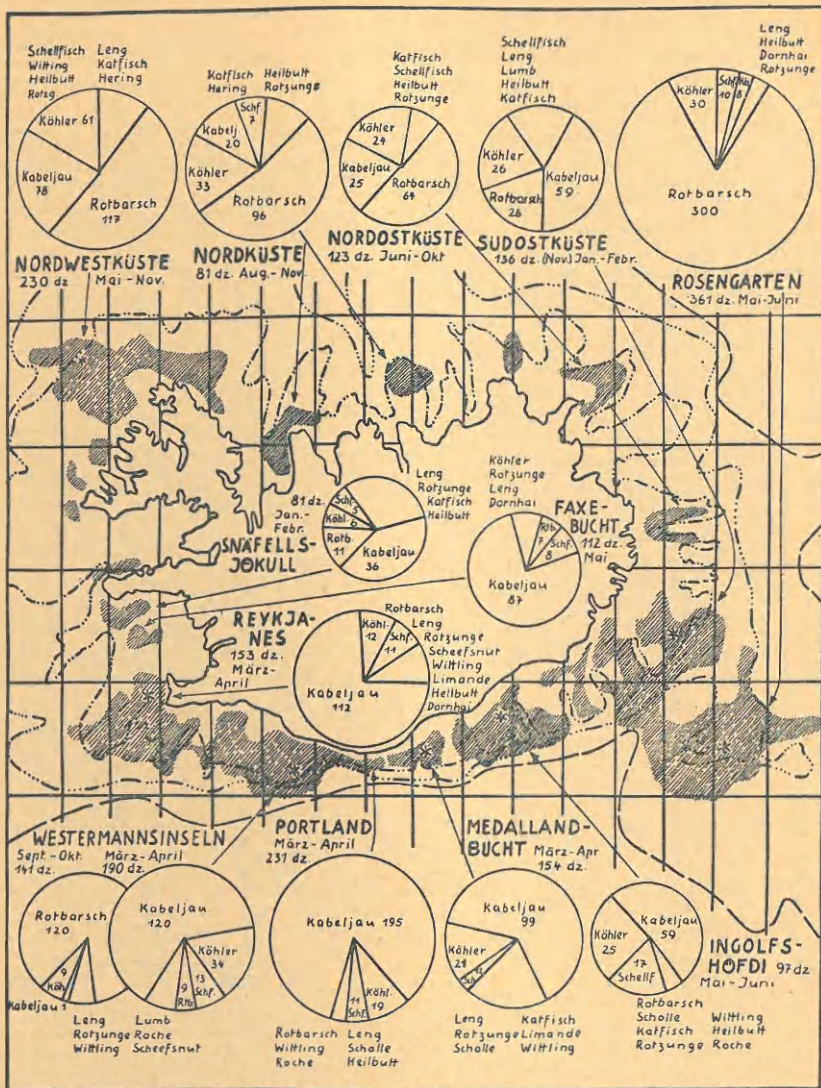 Schellfisch
Witting
Heilbutt
Rotzg
Leng
Katfisch
Hering
Köhler 61
Kabeljau
78
Rotbarsch
117
NORDWESTKÜSTE
230 dz Mai - Nov.
Katfisch
Hering
Heilbutt
Rotzunge
Schf.
7
Kabelj
20
Köhler
33
Rotbarsch
96
NORDKÜSTE
81 dz. Aug.-Nov.
Katfisch
Schellfisch
Heilbutt
Rotzunge
Köhler
24
Kabeljau
25
Rotbarsch
64
NORDOSTKÜSTE
123 dz. Juni-Okt
Schellfisch
Leng
Lumb
Heilbutt
Katfisch
Köhler
26
Rotbarsch
28
Kabeljau
59
SÜDOSTKÜSTE
136 dz. (Nov.) Jan.-Febr.
Leng
Heilbutt
Dornhai
Rotzunge
Köhler
30
Schf.
10
Kb.
8
Rotbarsch
300
ROSENGARTEN
361 dz. Mai-Juni
81 dz.
Jan.-
Febr.
SNÄFELLS-
JÖKULL
Schf.
5
Köhl.
6
Rotb.
11
Kabeljau
36
Leng
Rotzunge
Katfisch
Heilbutt
Köhler
Rotzunge
Leng
Dornhai
FAXE-
BUCHT
112 dz.
Mai
Rtb.
7
Schf.
8
Kabeljau
87
REYKJA-
NES
153 dz.
März-
April
Köhl.
12
Schf.
11
Kabeljau
112
Rotbarsch
Leng
Rotzunge
Scheefsnut
Wittling
Limande
Heilbutt
Dornhai
WESTERMANNSINSELN
Sept.-Okt. März-April
141 dz. 190 dz.
Rotbarsch
120
9
Köh.
Kabeljau 1
Leng
Rotzunge
Wittling
Kabeljau
120
Köhler
34
13
Schf.
9
Rtb
Lumb
Roche
Scheefsnut
PORTLAND
März-April
231 dz.
Kabeljau 195
Köhl.
19
11
Schf.
Rotbarsch
Wittling
Roche
Leng
Scholle
Heilbutt
MEDALLAND-
BUCHT März-Apr
154 dz.
Kabeljau
99
Köhler
21
12
Sch.
Leng
Rotzunge
Scholle
Katfisch
Limande
Wittling
INGOLFS-
HÖFDI 97 dz
Mai-Juni
Kabeljau
59
Köhler
25
17
Schellf
Rotbarsch
Scholle
Katfisch
Rotzunge
Wittling
Heilbutt
Roche